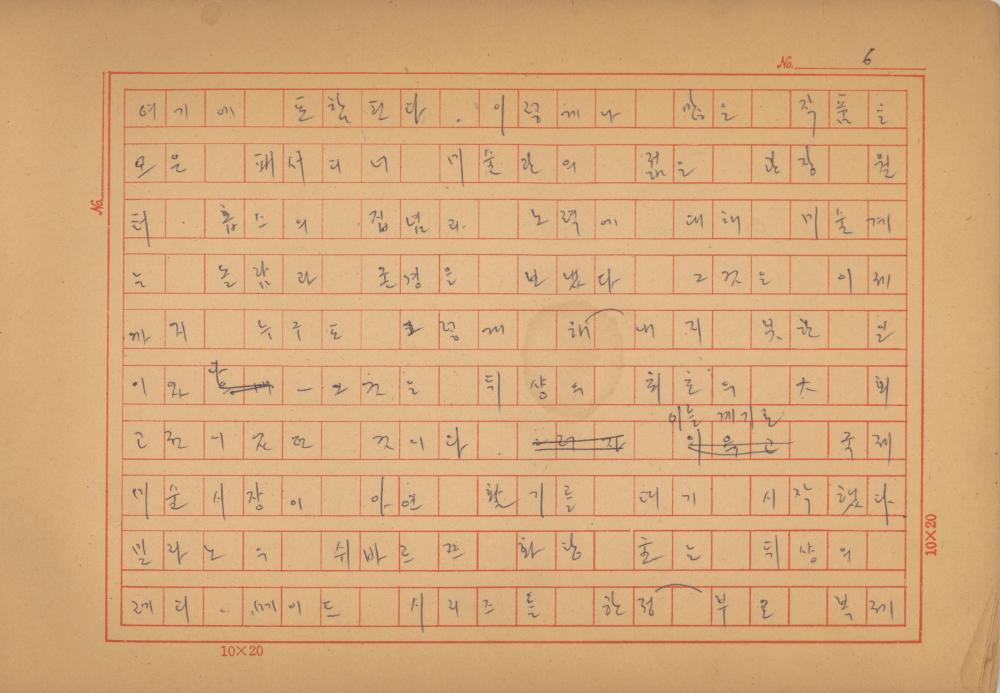 No. 6
여기에 포함된다. 이렇게나 많은 작품을
모은 패서디너 미술관의 젊은 관장 월
터·홉스의 집념과 노력에 대해 미술계
는 놀람과 존경을 보냈다 그것은 이제
까지 누구도 그렇게 해내지 못한 일
이었다 — 그것은 뒤샹의 최초의 大 회
고전이었던 것이다. 이를 계기로 국제
미술시장이 아연 활기를 띠기 시작했다
밀라노의 쉬바르쯔 화랑 호는 뒤샹의
레디·메이드 시리즈를 한정부로 복제
No.
10×20
10×20